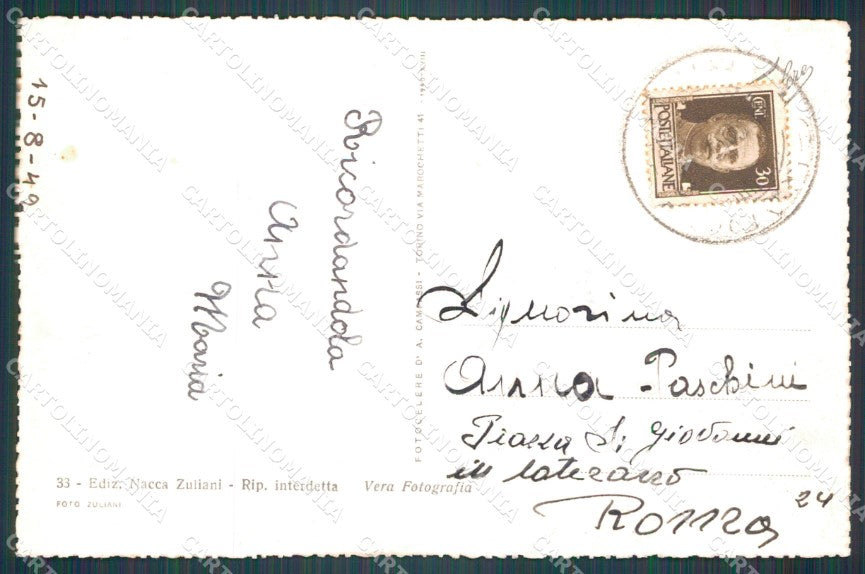 15-8-49
Ricordandola
Anna
Maria
33 - Ediz. Nacca Zuliani - Rip. interdetta Vera Fotografia
FOTO ZULIANI
FOTOCELERE D' A. CAMPASSI - TORINO VIA MAROCHETTI 41
30
CENT.
POSTE ITALIANE
Signorina
Anna Paschini
Piazza S. Giovanni
in Laterano
24
Roma
CARTOLINOMANIA